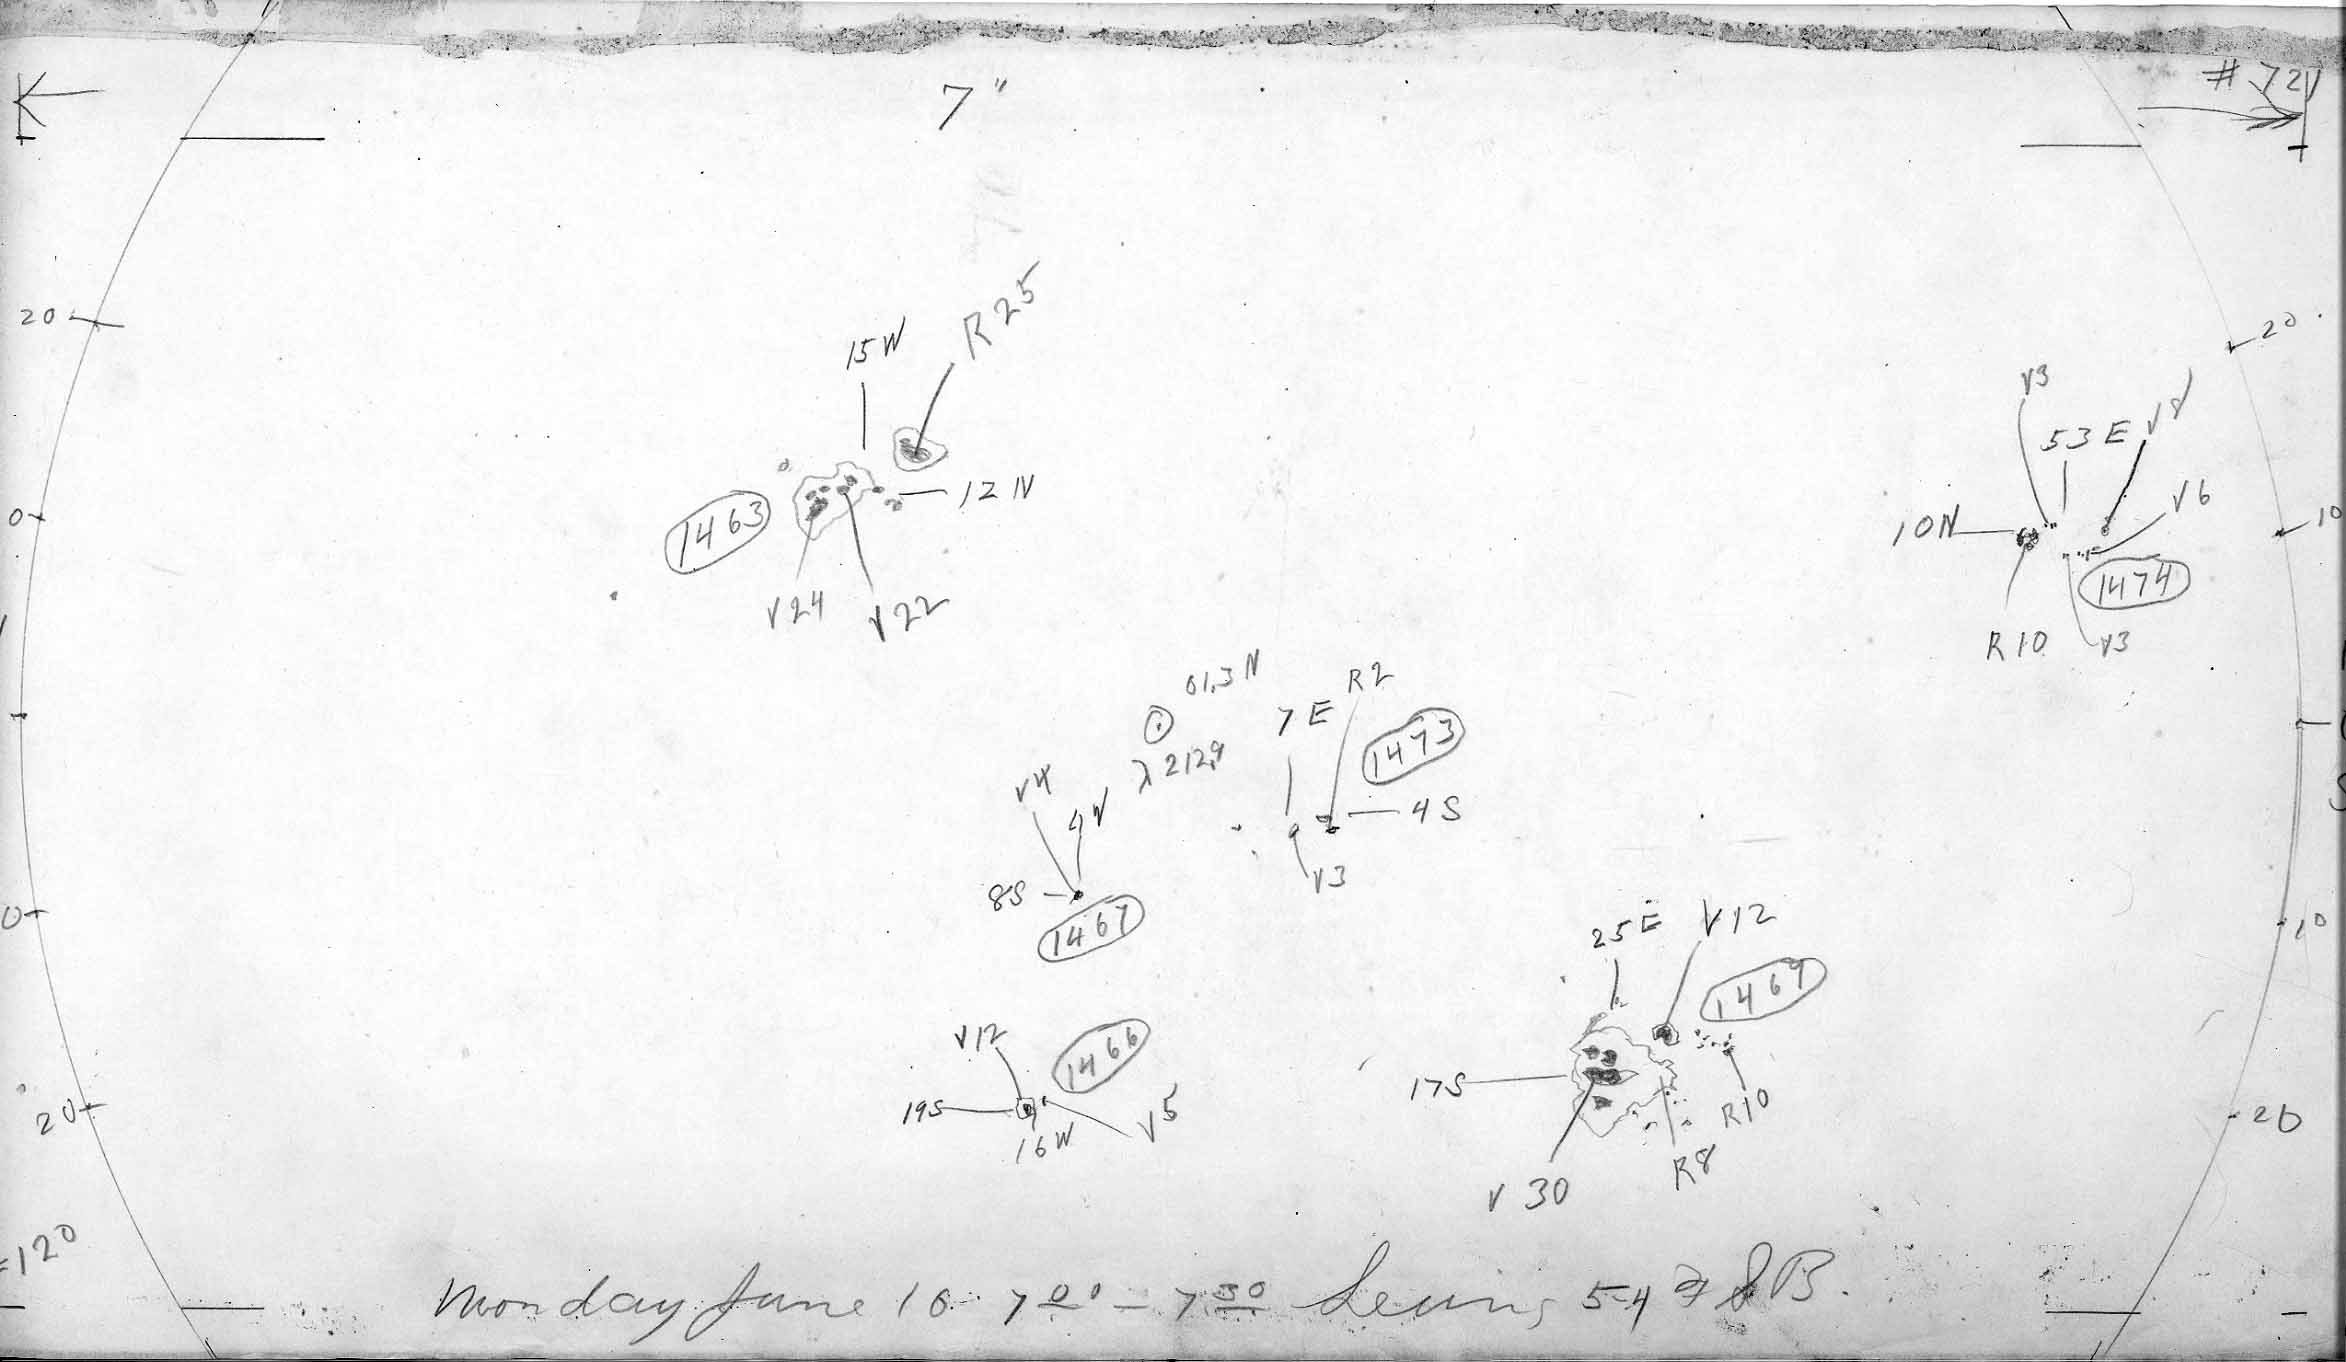 7"
# 721
20
20
15W
R25
V3
53E
V8
1463
12N
V6
0
10N
10
1474
V24
V22
R10
V3
01.3N
R2
7E
1473
λ 212.9
V4
4W
4S
V3
8S
1467
0
25E
V12
10
1469
V12
1466
17S
19S
16W
V5
R10
20
20
R8
V30
=120
Monday June 16 7 00 - 7 30 Seeing 5-4